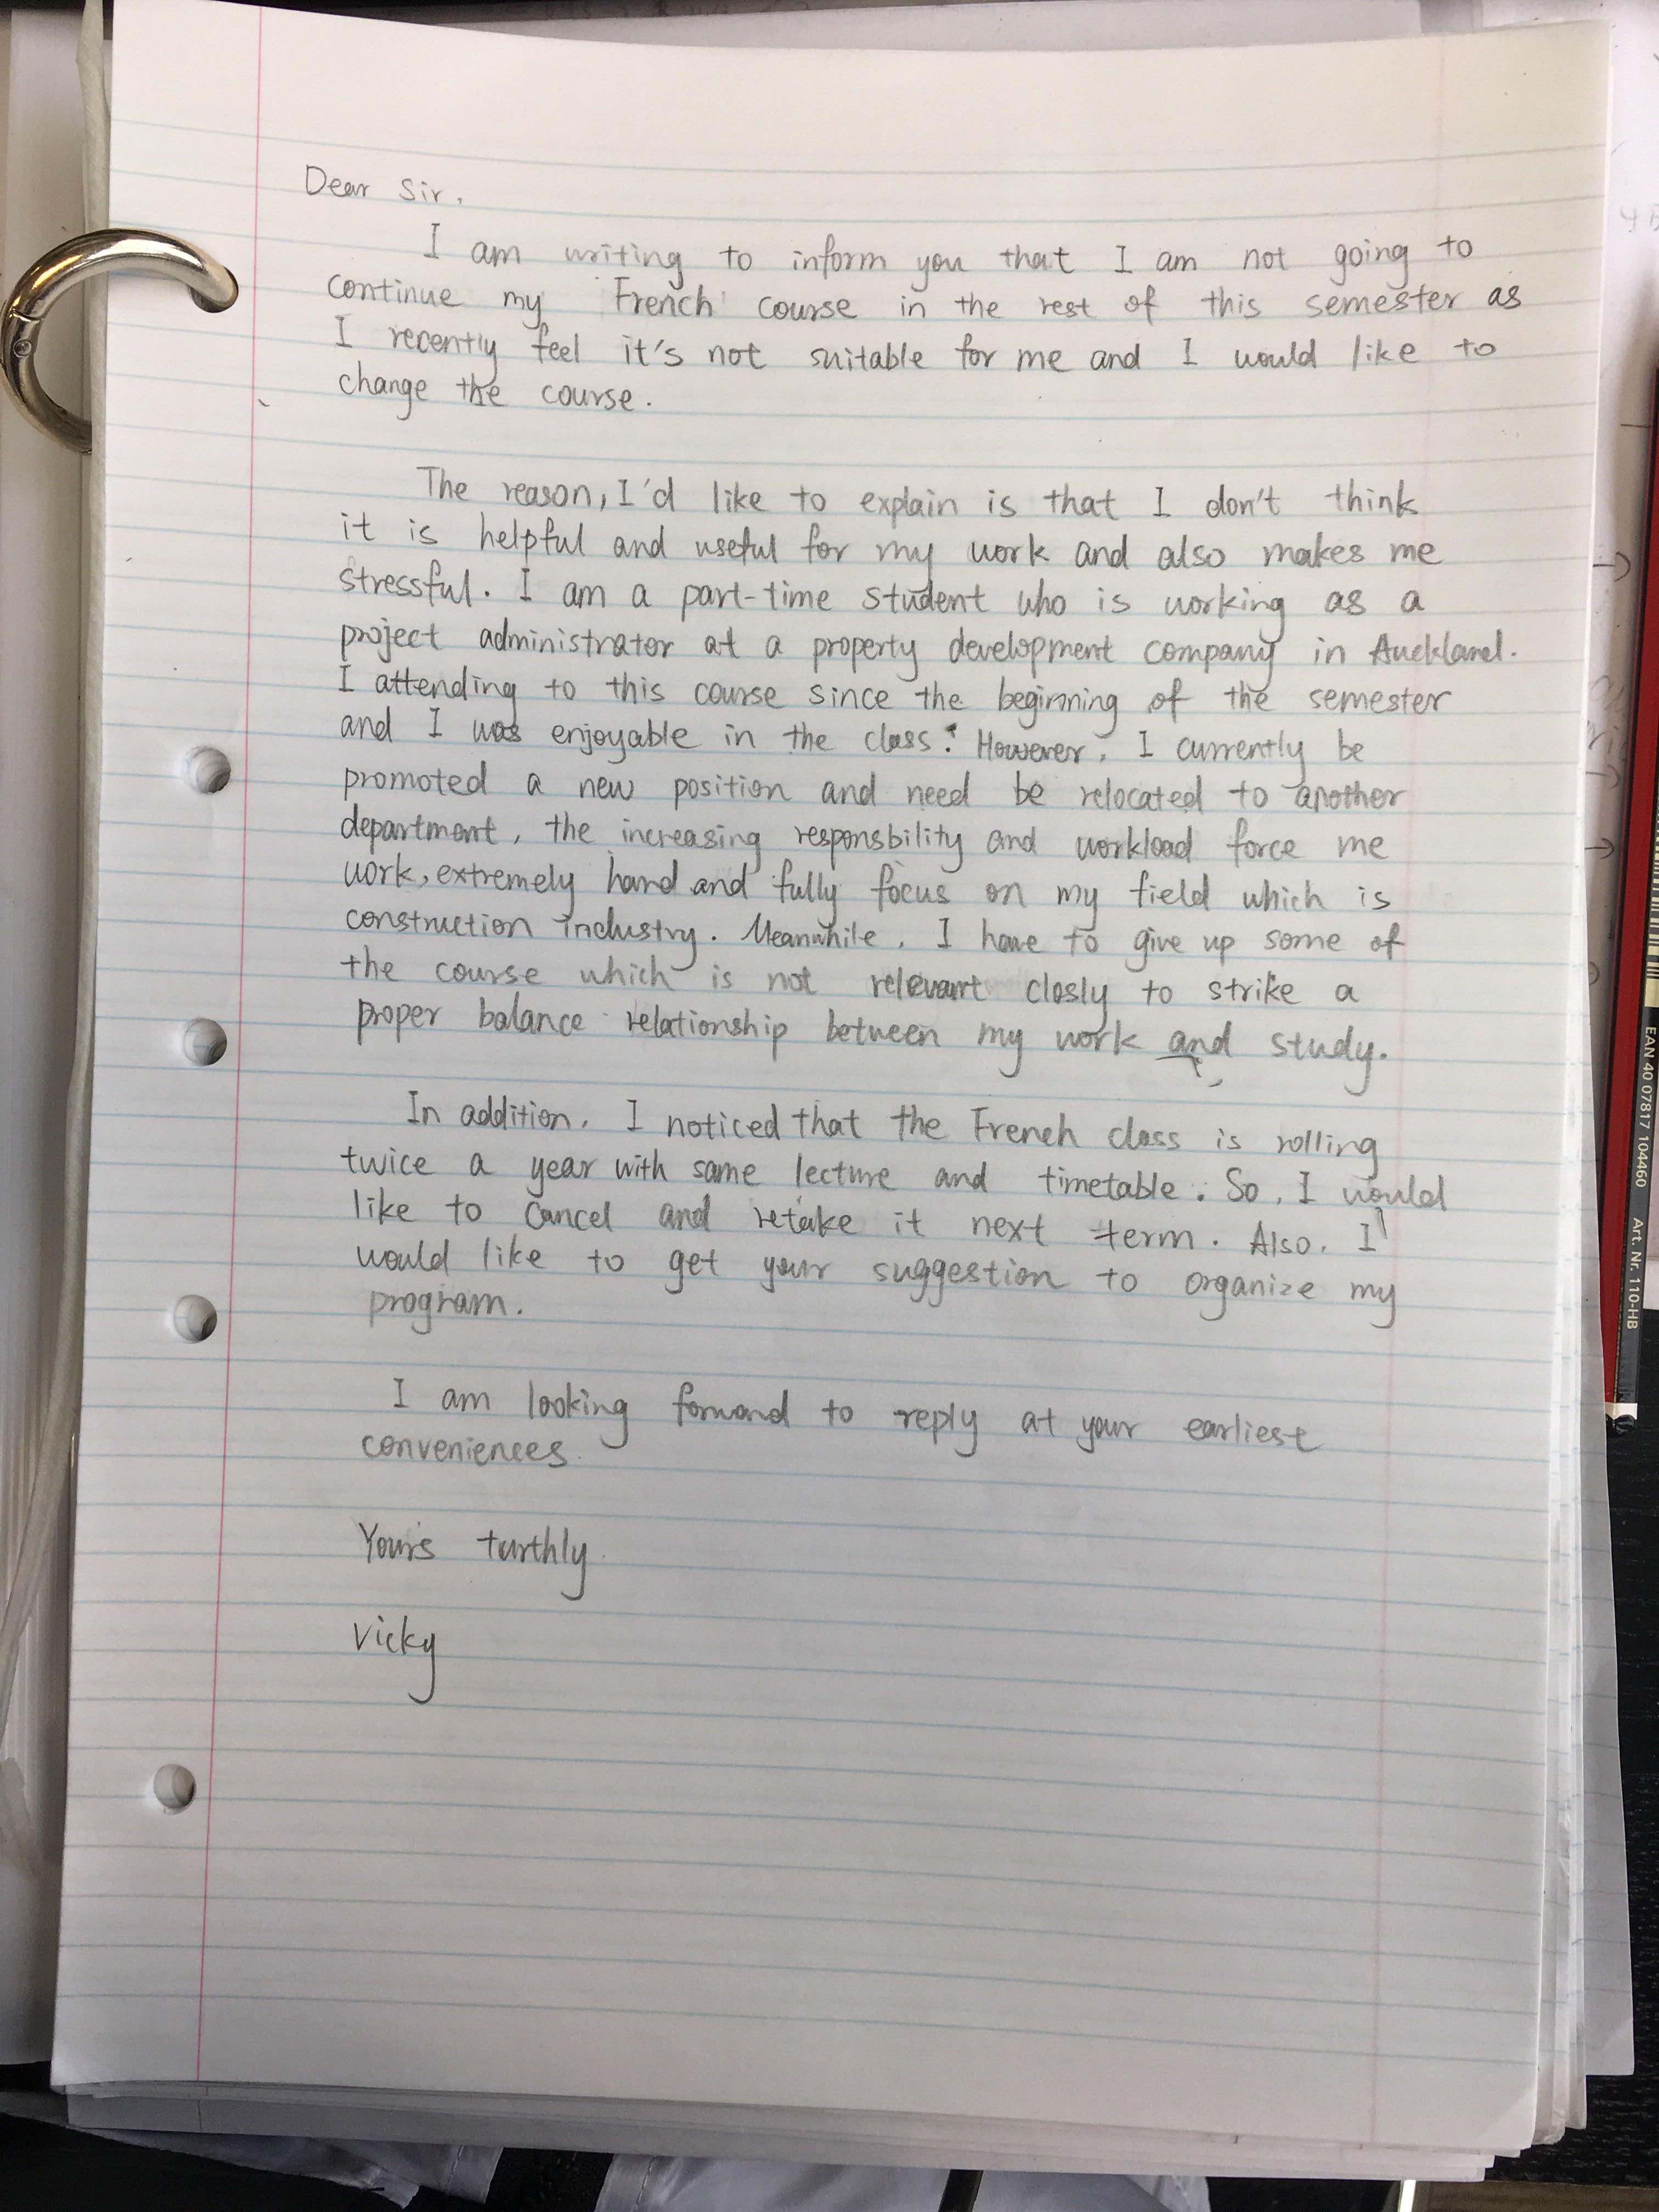 Dear Sir,
I am writing to inform you that I am not going to
continue my French course in the rest of this semester as
I recently feel it's not suitable for me and I would like to
change the course.
The reason, I'd like to explain is that I don't think
it is helpful and useful for my work and also makes me
stressful. I am a part-time student who is working as a
project administrator at a property development company in Auckland.
I attending to this course since the beginning of the semester
and I was enjoyable in the class. However, I currently be
promoted a new position and need be relocated to another
department, the increasing responsbility and workload force me
work, extremely hard and fully focus on my field which is
construction industry. Meanwhile, I have to give up some of
the course which is not relevant closly to strike a
proper balance relationship between my work and study.
In addition, I noticed that the French class is rolling
twice a year with same lecture and timetable. So, I would
like to cancel and retake it next term. Also, I
would like to get your suggestion to organize my
program.
I am looking forward to reply at your earliest
conveniences.
Yours turthly
Vicky
EAN 40 07817 104460 Art. Nr. 110-HB